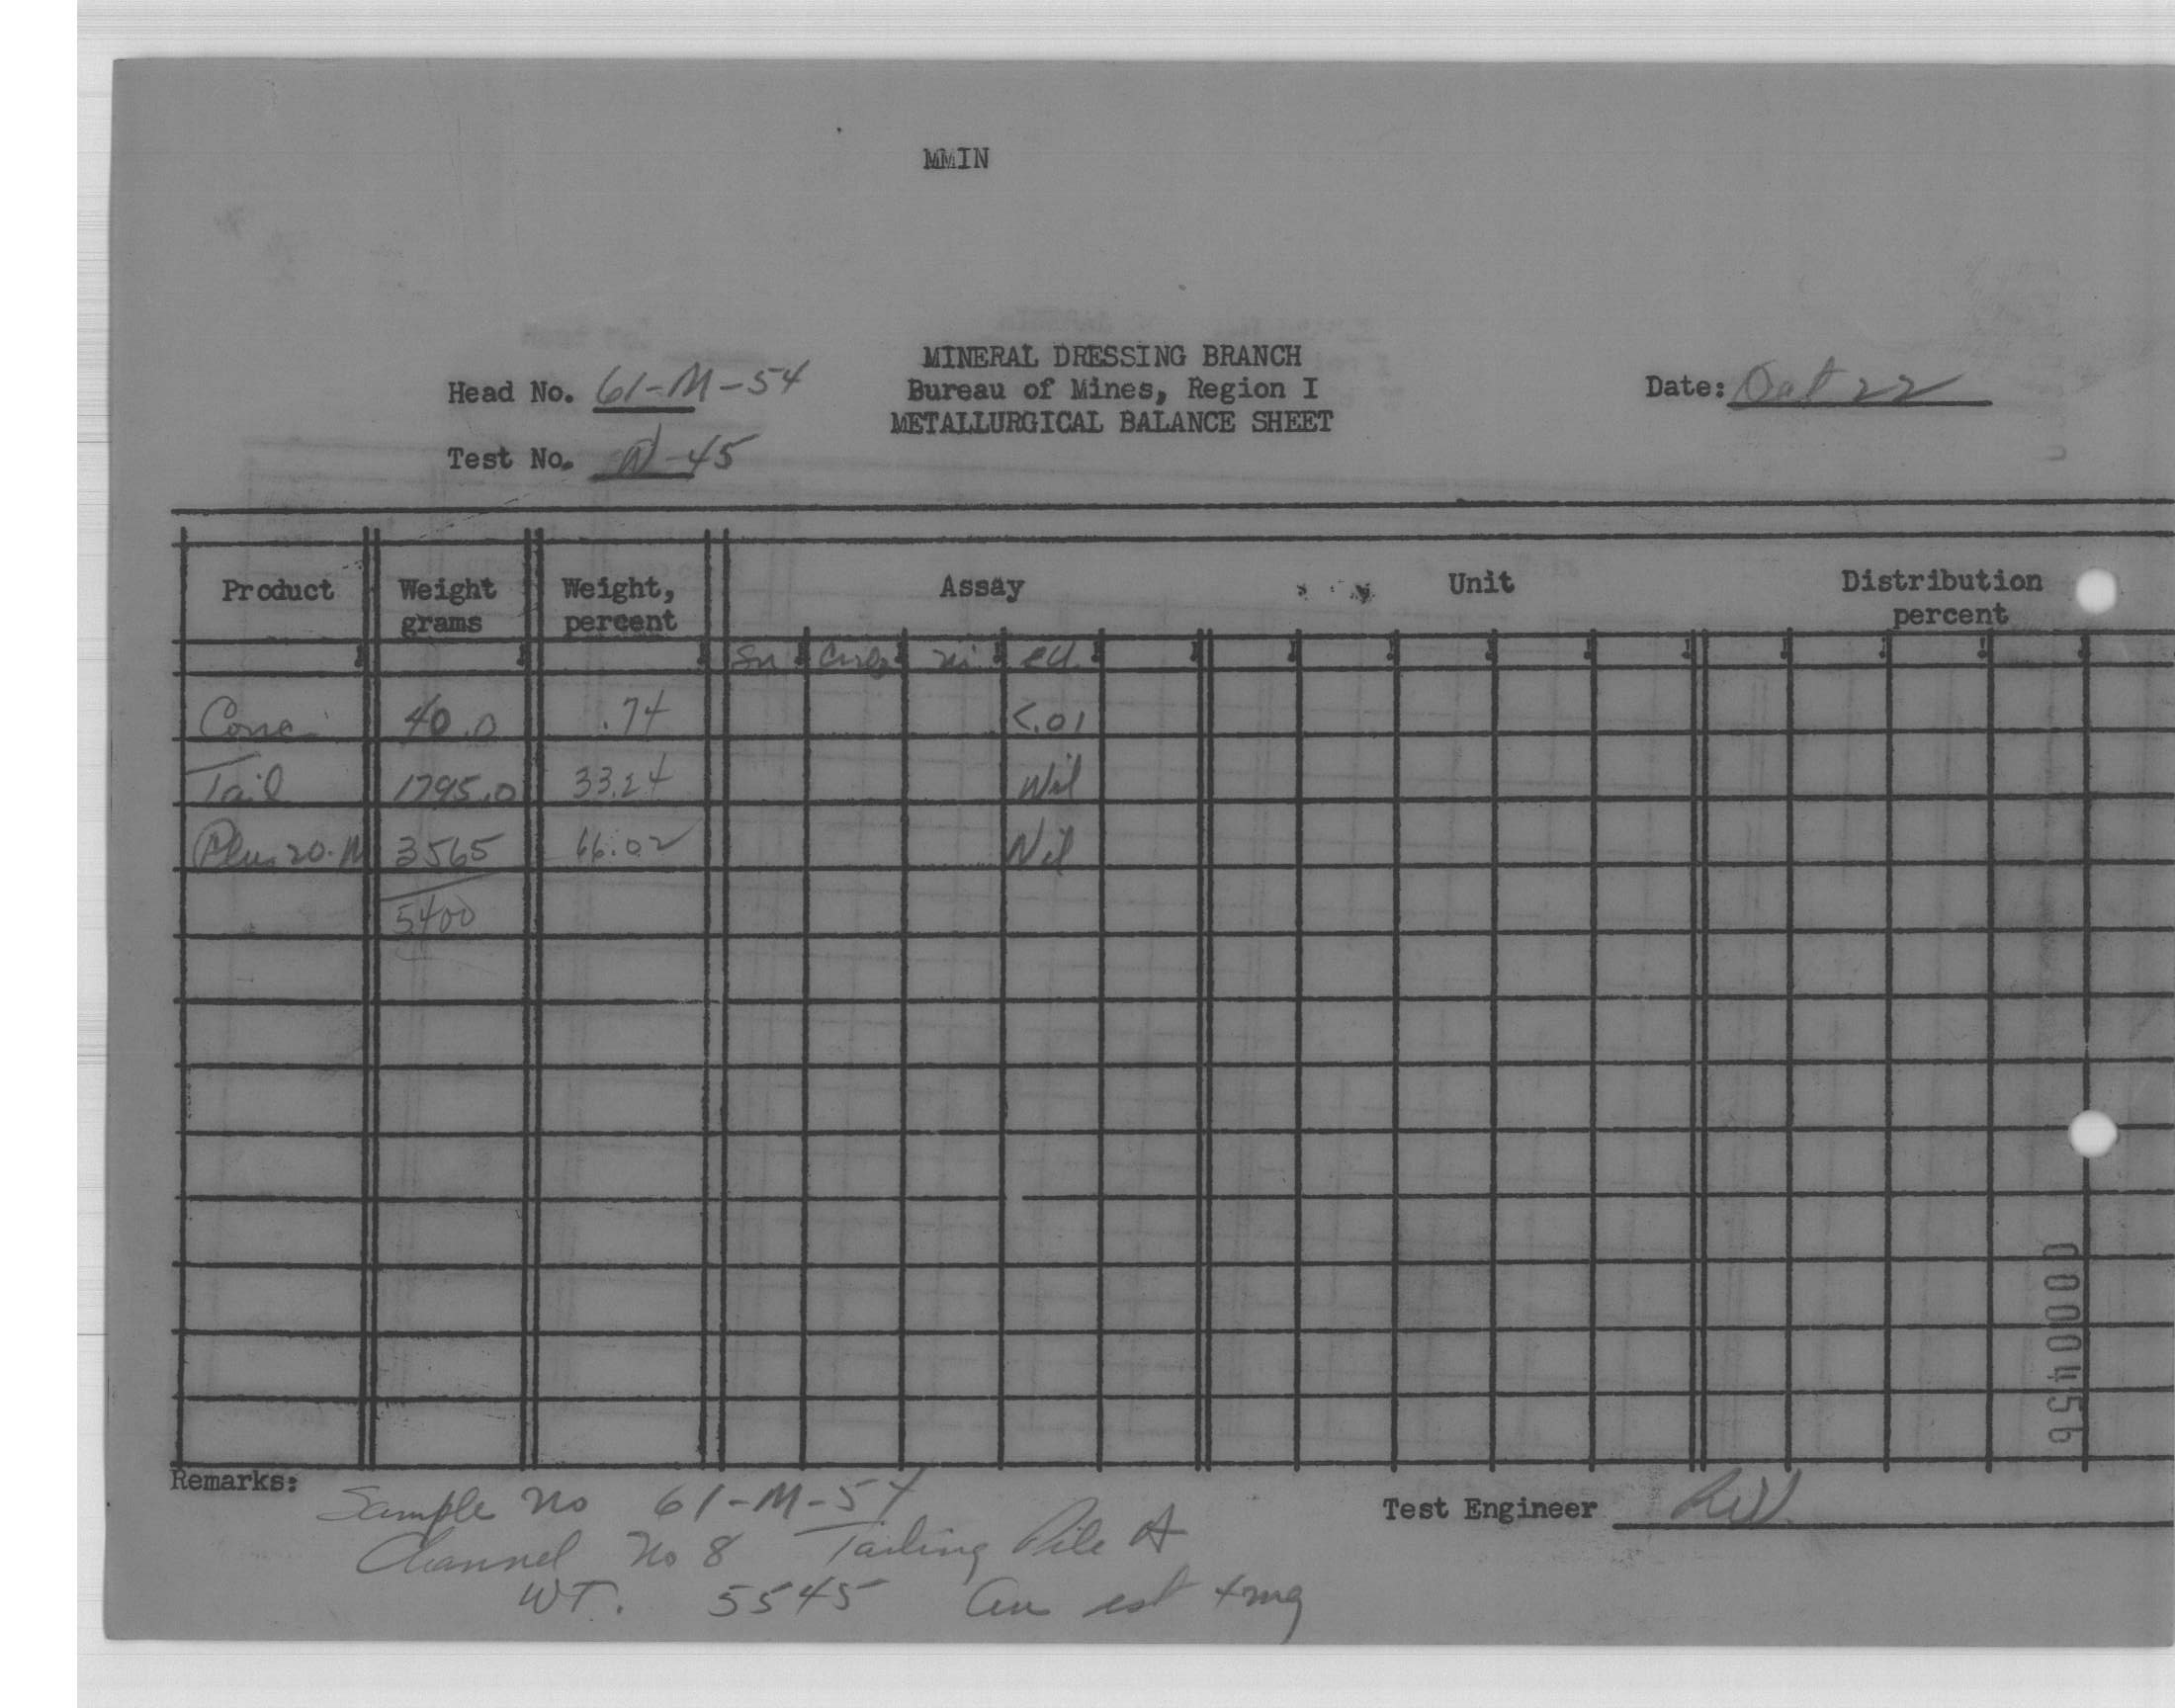 MMIN
MINERAL DRESSING BRANCH
Head No. 61-M-54 Bureau of Mines, Region I Date: Oct 22
METALLURGICAL BALANCE SHEET
Test No. -45
Product Weight grams Weight, percent Assay Unit Distribution percent
Sn Ni eU
Conc .40.0 .74 <.01
Tail 1795.0 33.24 Nil
Plus 20.M 3565 66.02 Nil
5400
Remarks:
Sample No 61-M-54
Test Engineer
Channel No 8 Tailing Pile A
WT. 5545 Au est mg
0000456